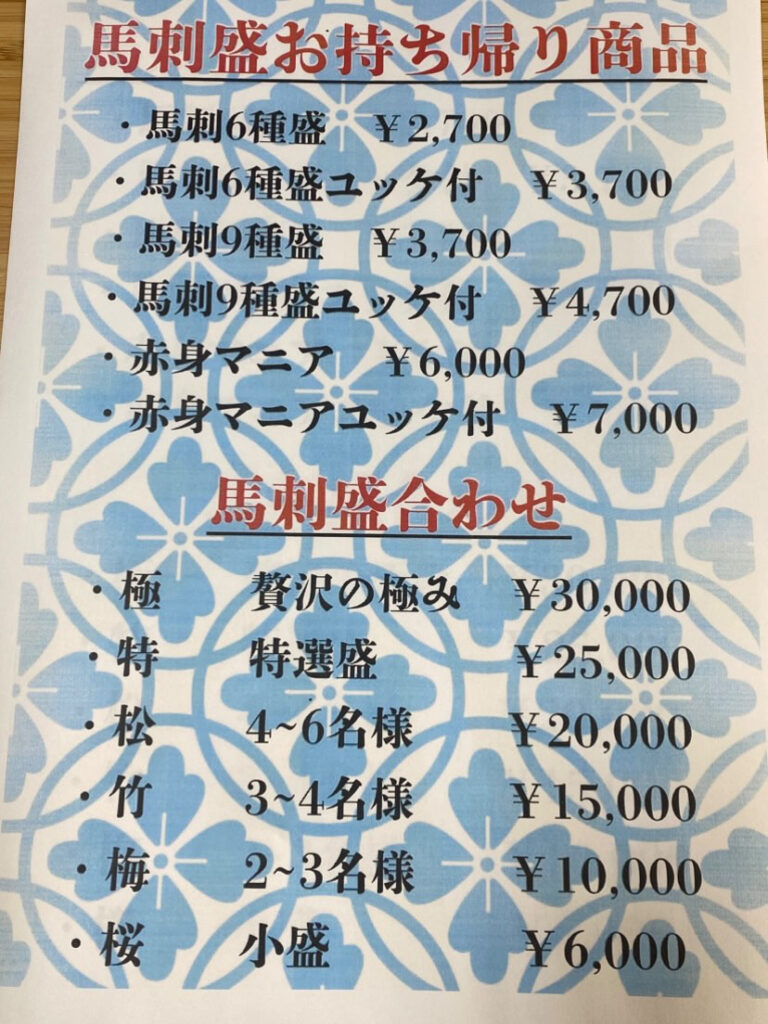 馬刺盛お持ち帰り商品
・馬刺6種盛　¥2,700
・馬刺6種盛ユッケ付　¥3,700
・馬刺9種盛　¥3,700
・馬刺9種盛ユッケ付　¥4,700
・赤身マニア　¥6,000
・赤身マニアユッケ付　¥7,000
馬刺盛合わせ
・極　贅沢の極み　¥30,000
・特　特選盛　¥25,000
・松　4~6名様　¥20,000
・竹　3~4名様　¥15,000
・梅　2~3名様　¥10,000
・桜　小盛　¥6,000